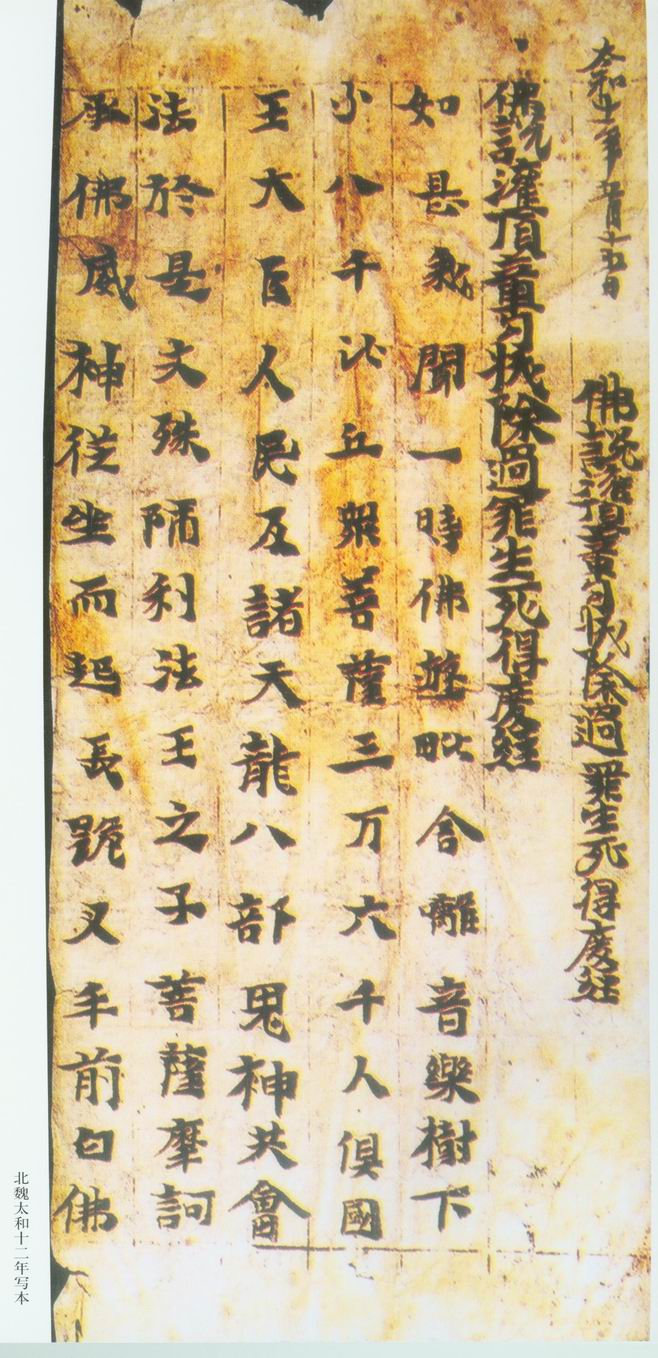 太和十二年五月十五日 佛說灌頂章句拔除過罪生死得度経
佛說灌頂章句拔除過罪生死得度経
如是我聞一時佛遊毗舍離音樂樹下
与八千比丘衆菩薩三万六千人俱國
王大臣人民及諸天龍八部鬼神共會
法於是文殊師利法王之子菩薩摩訶
承佛威神從坐而起長跪叉手前白佛
北魏太和十二年写本